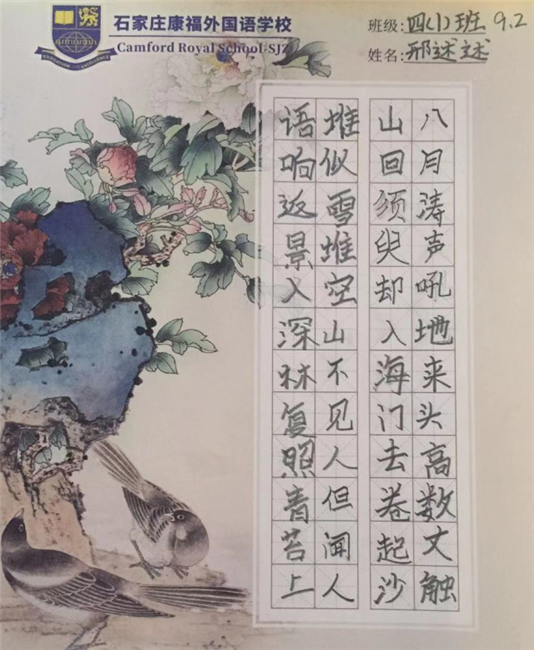 石家庄康福外国语学校
Camford Royal School·SJZ
班级: 四(1)班 9.2
姓名: 邢述述
八月涛声吼地来头高数丈触
山回须臾却入海门去卷起沙
堆似雪堆空山不见人但闻人
语响返景入深林复照青苔上